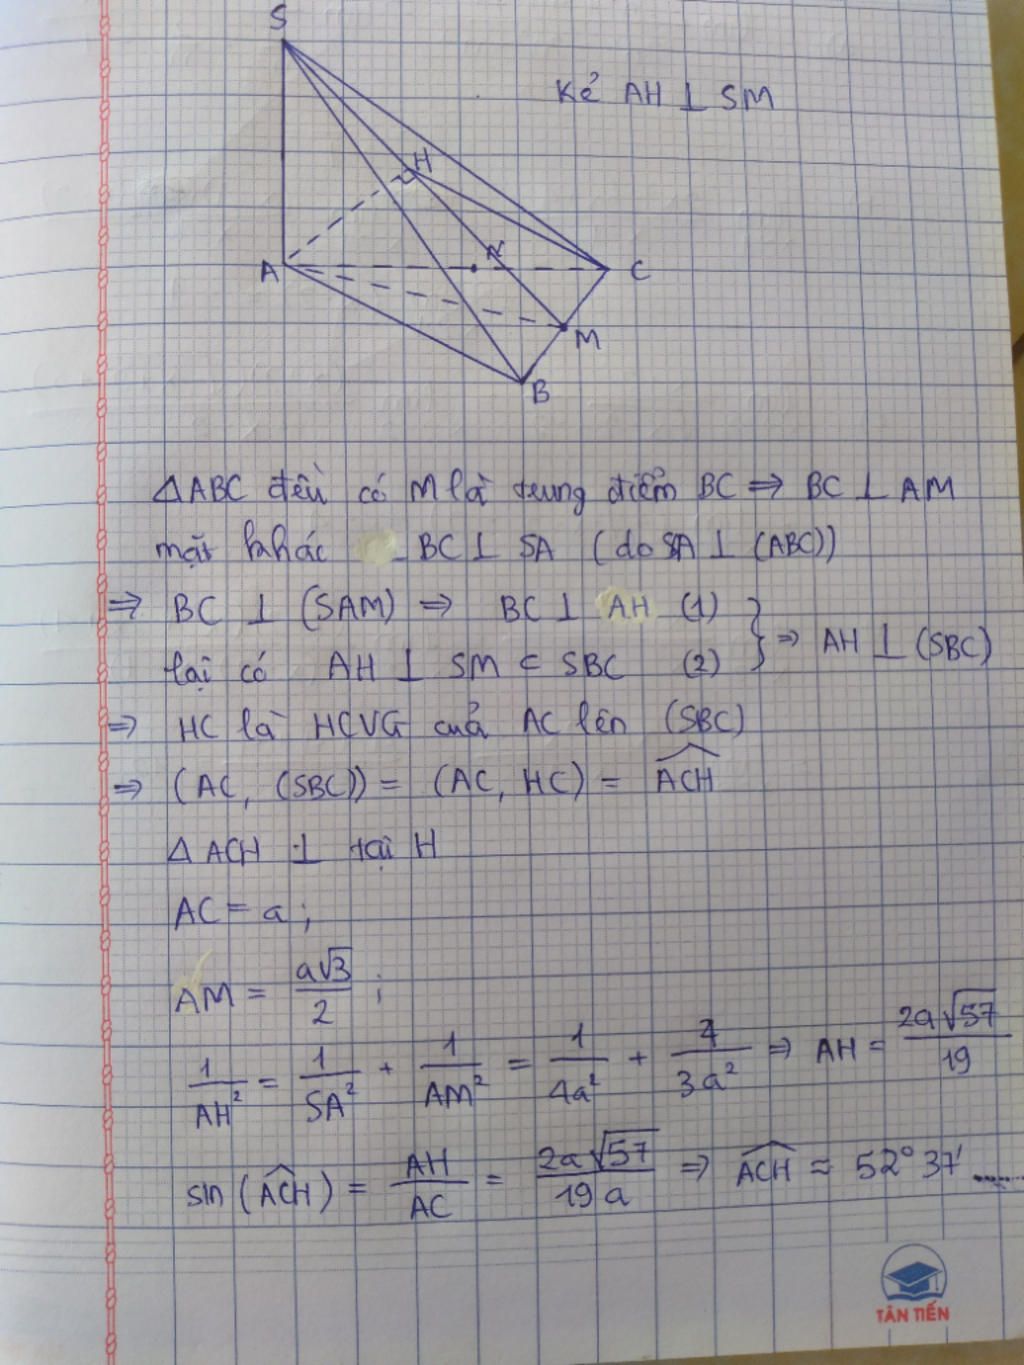 S
Kẻ AH ⊥ SM
H
N
A
C
M
B
ΔABC đều có M là trung điểm BC ⇒ BC ⊥ AM
mặt khác BC ⊥ SA (do SA ⊥ (ABC))
⇒ BC ⊥ (SAM) ⇒ BC ⊥ AH (1)
lại có AH ⊥ SM ⊂ SBC (2) } ⇒ AH ⊥ (SBC)
⇒ HC là HCVG của AC lên (SBC)
⇒ (AC, (SBC)) = (AC, HC) = \widehat{ACH}
Δ ACH ⊥ tại H
AC = a ;
AM = \frac{a\sqrt{3}}{2} ;
\frac{1}{AH^2} = \frac{1}{SA^2} + \frac{1}{AM^2} = \frac{1}{4a^2} + \frac{4}{3a^2} ⇒ AH = \frac{2a\sqrt{57}}{19}
sin (\widehat{ACH}) = \frac{AH}{AC} = \frac{2a\sqrt{57}}{19a} ⇒ \widehat{ACH} ≈ 52° 37' ......
TÂN TIẾN